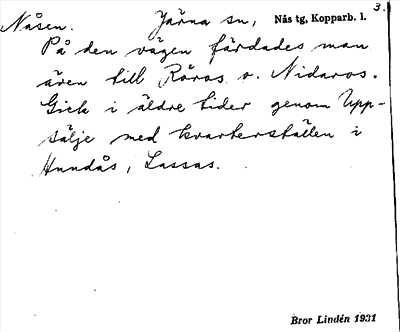 3.
Nåsen. Järna sn, Nås tg, Kopparb. l.
På den vägen färdades man
även till Röros o. Nidaros.
Gick i äldre tider genom Upp-
sälje med kvarterställen i
Hundås, Lassas.
Bror Lindén 1931